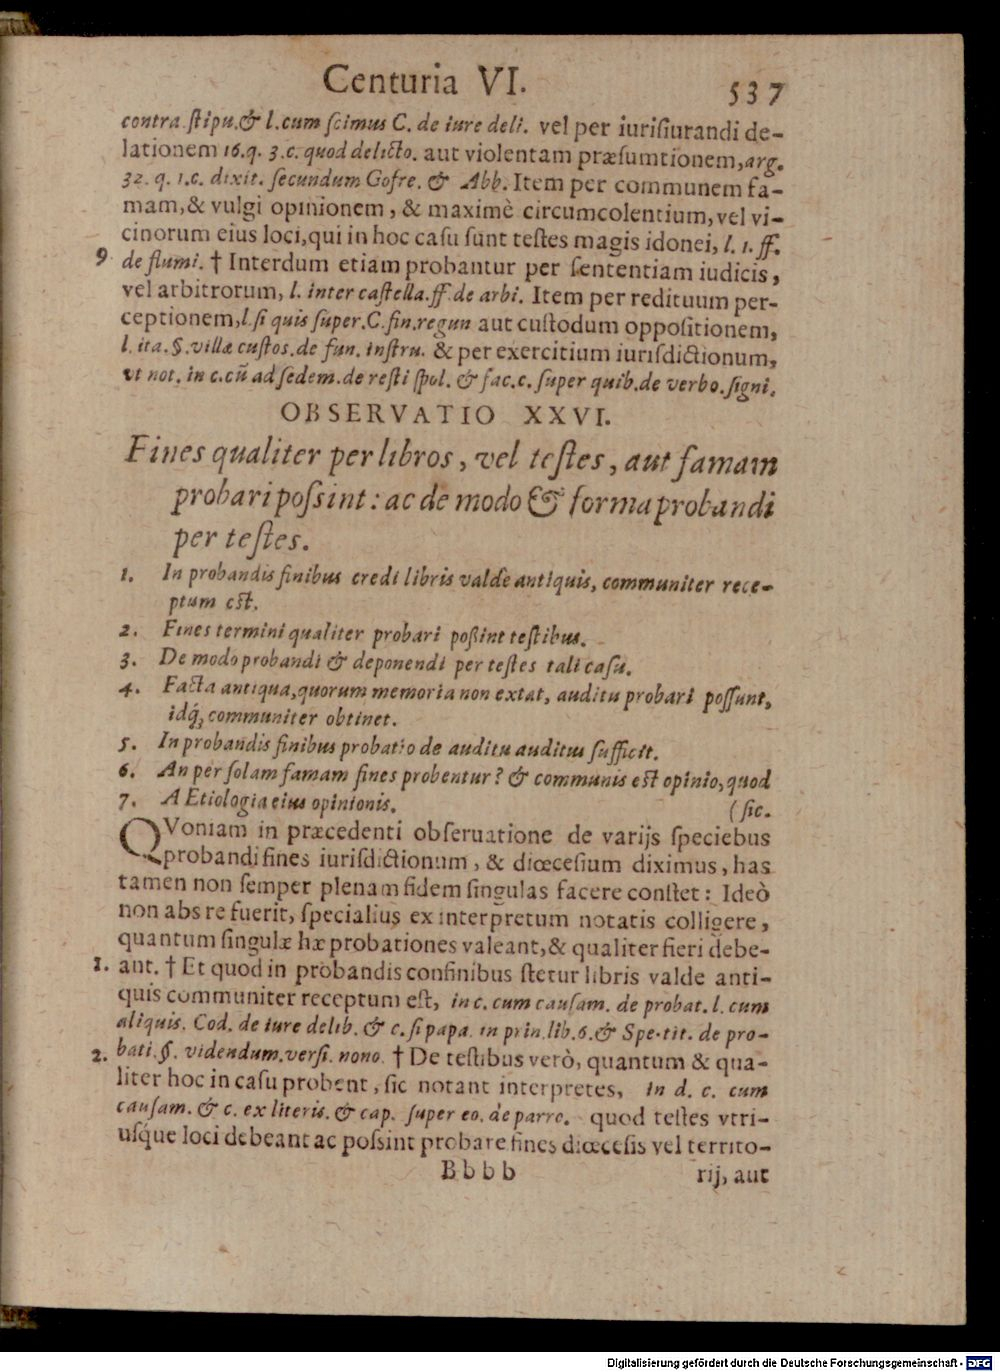 Centuria VI. 537
contra ſtipu. & l. cum ſcimus C. de iure deli. vel per iuriſiurandi de-
lationem 16. q. 3. c. quod delicto. aut violentam præſumtionem, arg.
32. q. 1. c. dixit. ſecundum Gofre. & Abb. Item per communem fa-
mam, & vulgi opinionem, & maximè circumcolentium, vel vi-
cinorum eius loci, qui in hoc caſu ſunt teſtes magis idonei, l. 1. ff.
9 de flumi. † Interdum etiam probantur per ſententiam iudicis,
vel arbitrorum, l. inter caſtella. ff. de arbi. Item per redituum per-
ceptionem, l. ſi quis ſuper. C. fin. regun aut cuſtodum oppoſitionem,
l. ita. §. villæ cuſtos. de fun. inſtru. & per exercitium iuriſdictionum,
vt not. in c. cũ ad ſedem. de reſti ſpol. & fac. c. ſuper quib. de verbo. ſigni.
OBSERVATIO XXVI.
Fines qualiter per libros, vel teſtes, aut famam
probari poſsint: ac de modo & forma probandi
per teſtes.
1. In probandis finibus credi libris valde antiquis, communiter rece-
ptum eſt.
2. Fines termini qualiter probari poßint teſtibus.
3. De modo probandi & deponendi per teſtes tali caſu.
4. Facta antiqua, quorum memoria non extat, auditu probari poſſunt,
idq́; communiter obtinet.
5. In probandis finibus probatio de auditu auditus ſufficit.
6. An per ſolam famam fines probentur? & communis eſt opinio, quod
7. AEtiologia eius opinionis. (ſic.
QVoniam in præcedenti obſeruatione de varijs ſpeciebus
probandi fines iuriſdictionum, & diœceſium diximus, has
tamen non ſemper plenam fidem ſingulas facere conſtet: Ideò
non abs re fuerit, ſpecialius ex interpretum notatis colligere,
quantum ſingulæ hæ probationes valeant, & qualiter fieri debe-
1. ant. † Et quod in probandis confinibus ſtetur libris valde anti-
quis communiter receptum eſt, in c. cum cauſam. de probat. l. cum
aliquis. Cod. de iure delib. & c. ſi papa. in prin. lib. 6. & Spe. tit. de pro-
2. bati. §. videndum. verſi. nono. † De teſtibus verò, quantum & qua-
liter hoc in caſu probent, ſic notant interpretes, in d. c. cum
cauſam. & c. ex literis. & cap. ſuper eo. de parro. quod teſtes vtri-
uſque loci debeant ac poſsint probare fines diœceſis vel territo-
Bbbb rij, aut
Digitalisierung gefördert durch die Deutsche Forschungsgemeinschaft - DFG